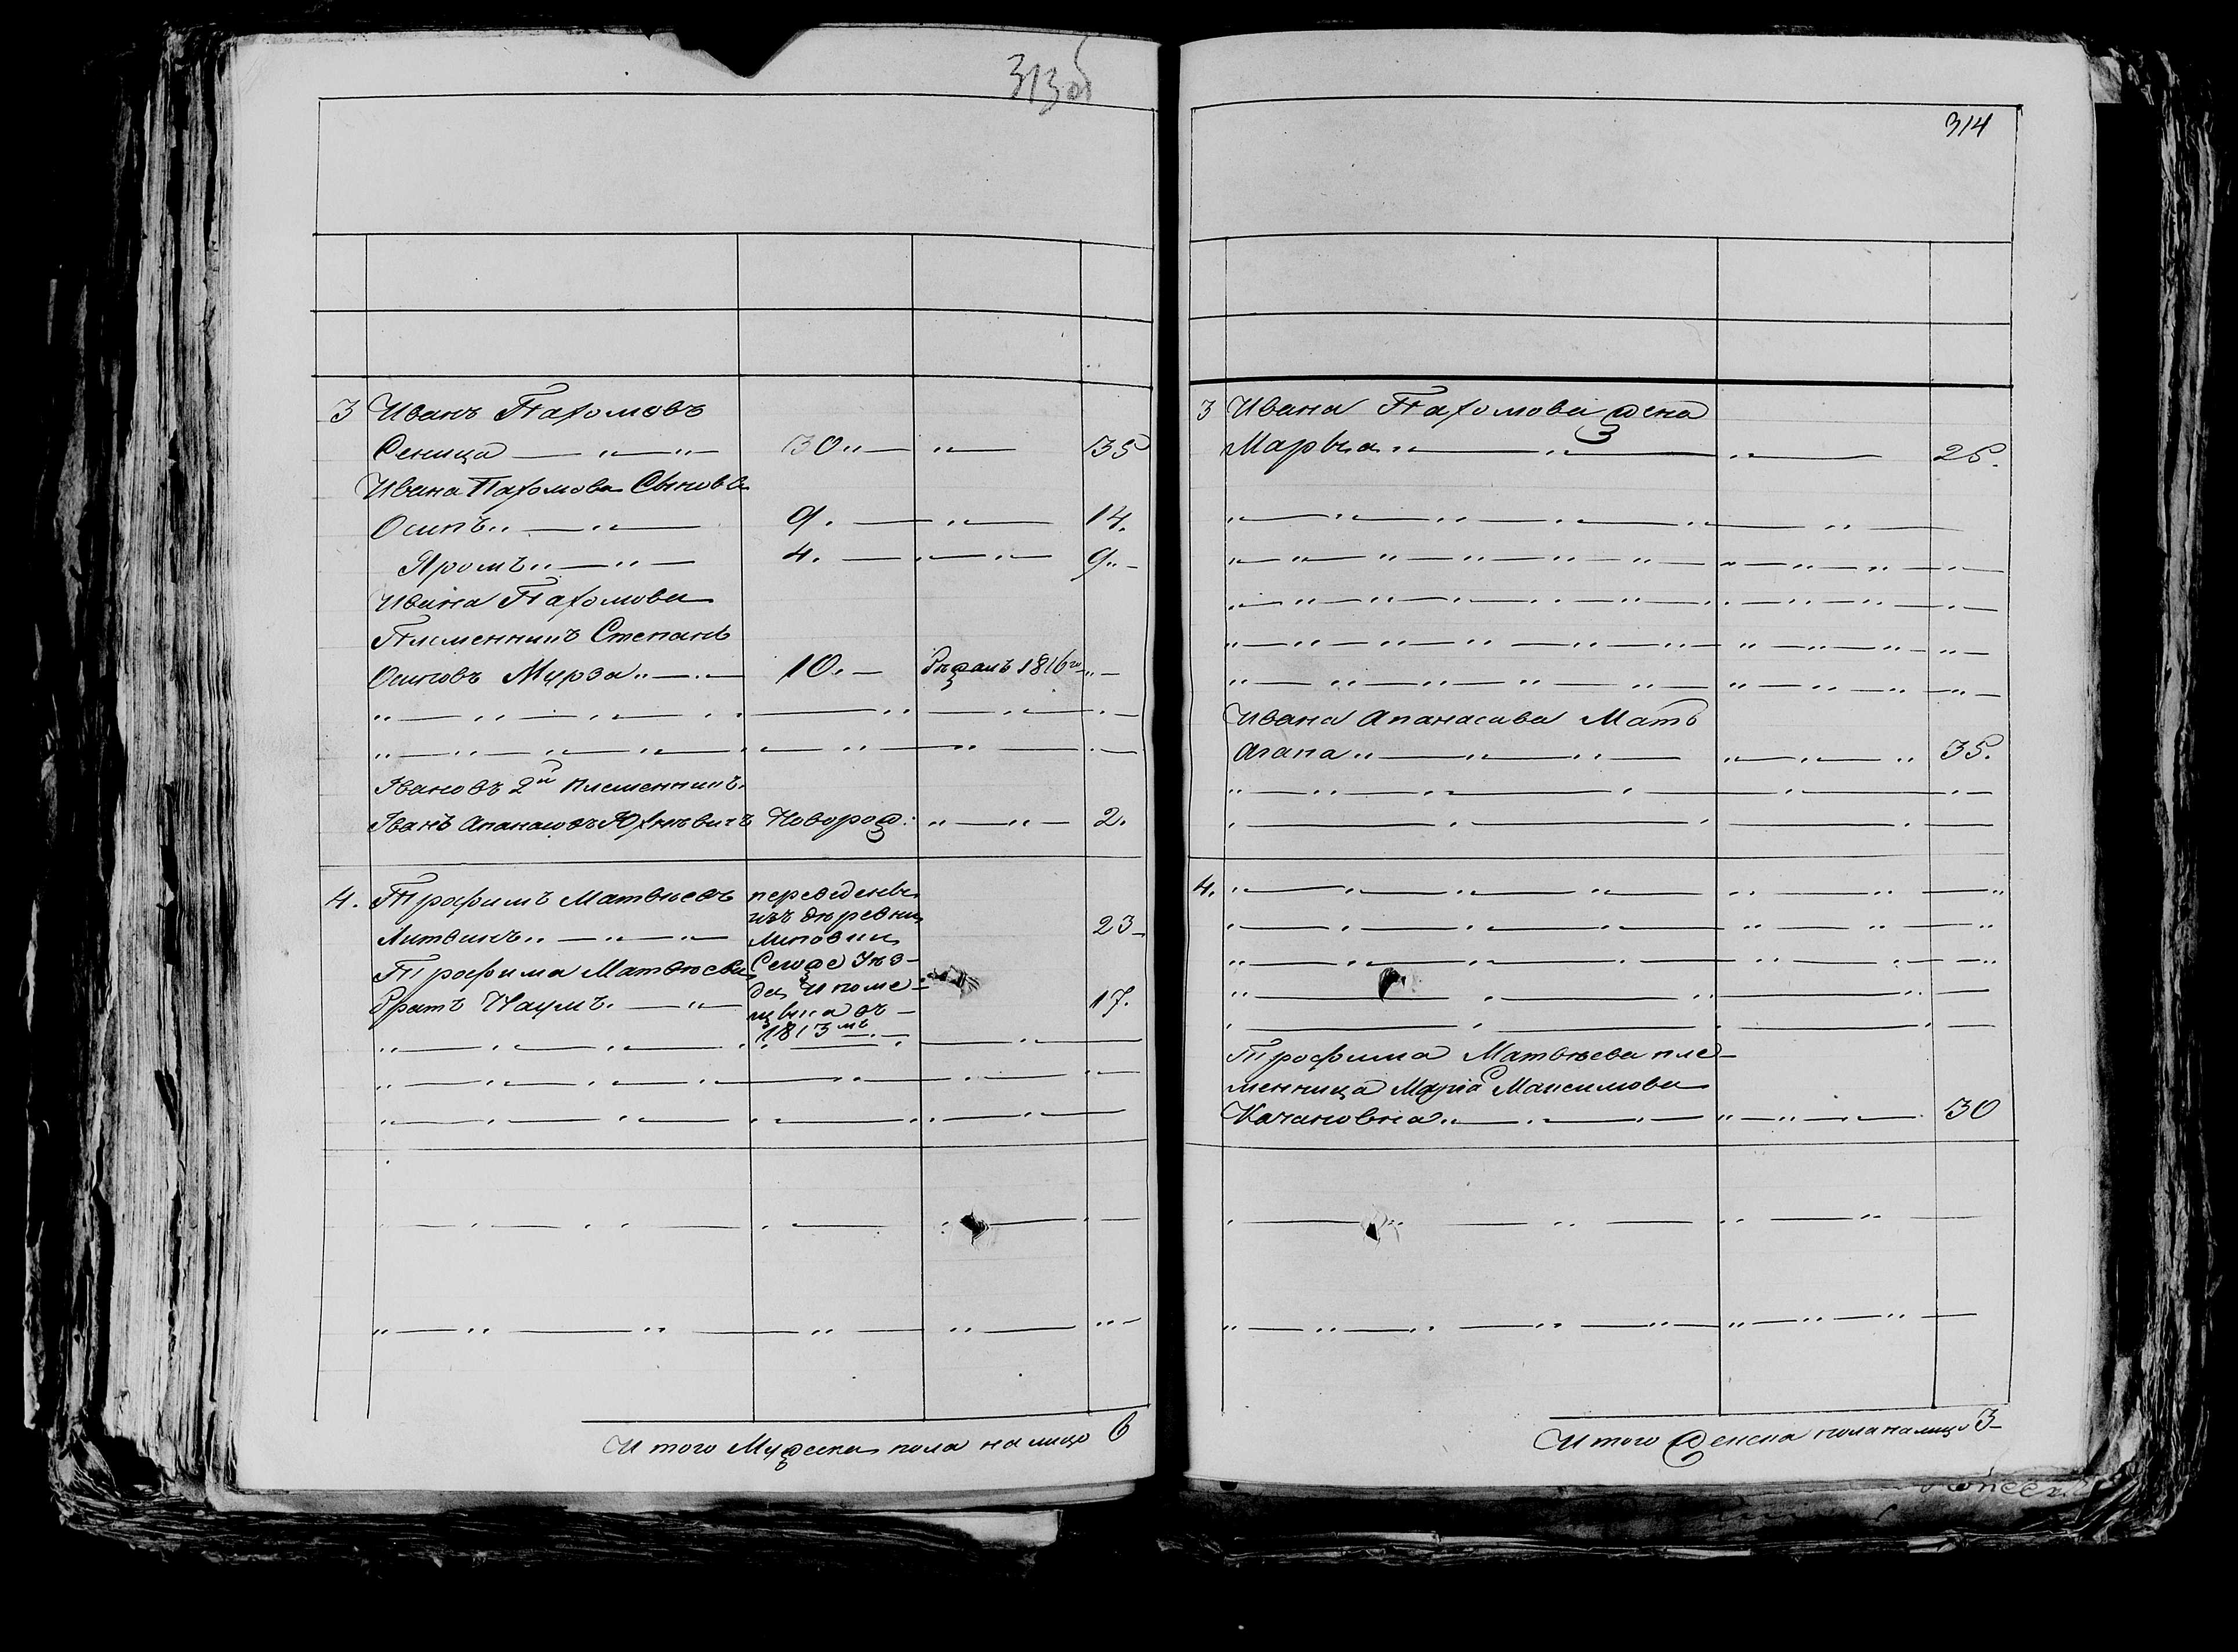 313об
3 Иванъ Пахомовъ
Сеница 30 35
Ивана Пахомова Сыновья
Осипъ 9. 14.
Яромъ 4. 9
Ивана Пахомова
Племенникъ Степанъ
Осиповъ Мурза 10. 1816го
Івановъ 2й племенникъ
Іванъ Апанасовъ Новорож: 2.
4. Трофимъ Матвѣевъ переведены
изъ деревни
Литвинъ 23
Трофима Матвѣева Сегоже Уѣз-
да и поме-
братъ Наумъ. 17.
щика въ
1813мъ
Итого Мужеска пола на лицо 6
314
3 Ивана Пахомова жена
Марья 25.
Ивана Апанасава Мать
Агапа 35.
4.
Трофима Матвѣева пле-
менница Марiа Максимова
Качановна 30
Итого женска пола налицо 3